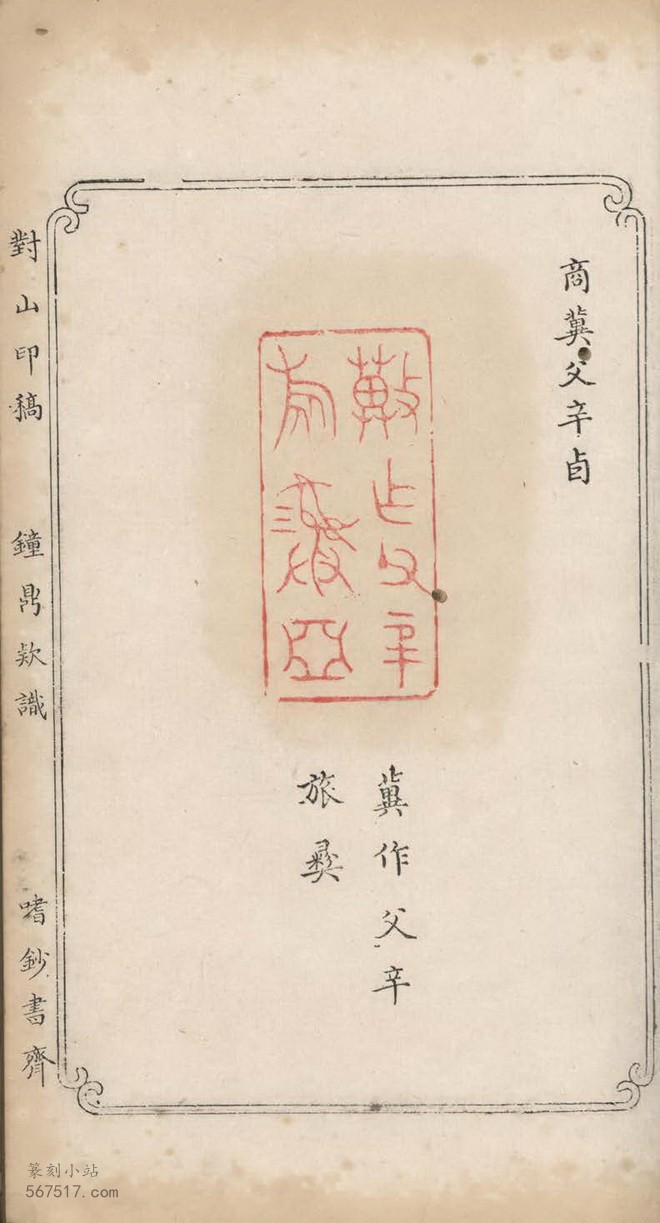 商冀父辛卣
冀作父辛
旅彝
對山印稿 鐘鼎欵識 嗜鈔書齋
篆刻小站
567517.com